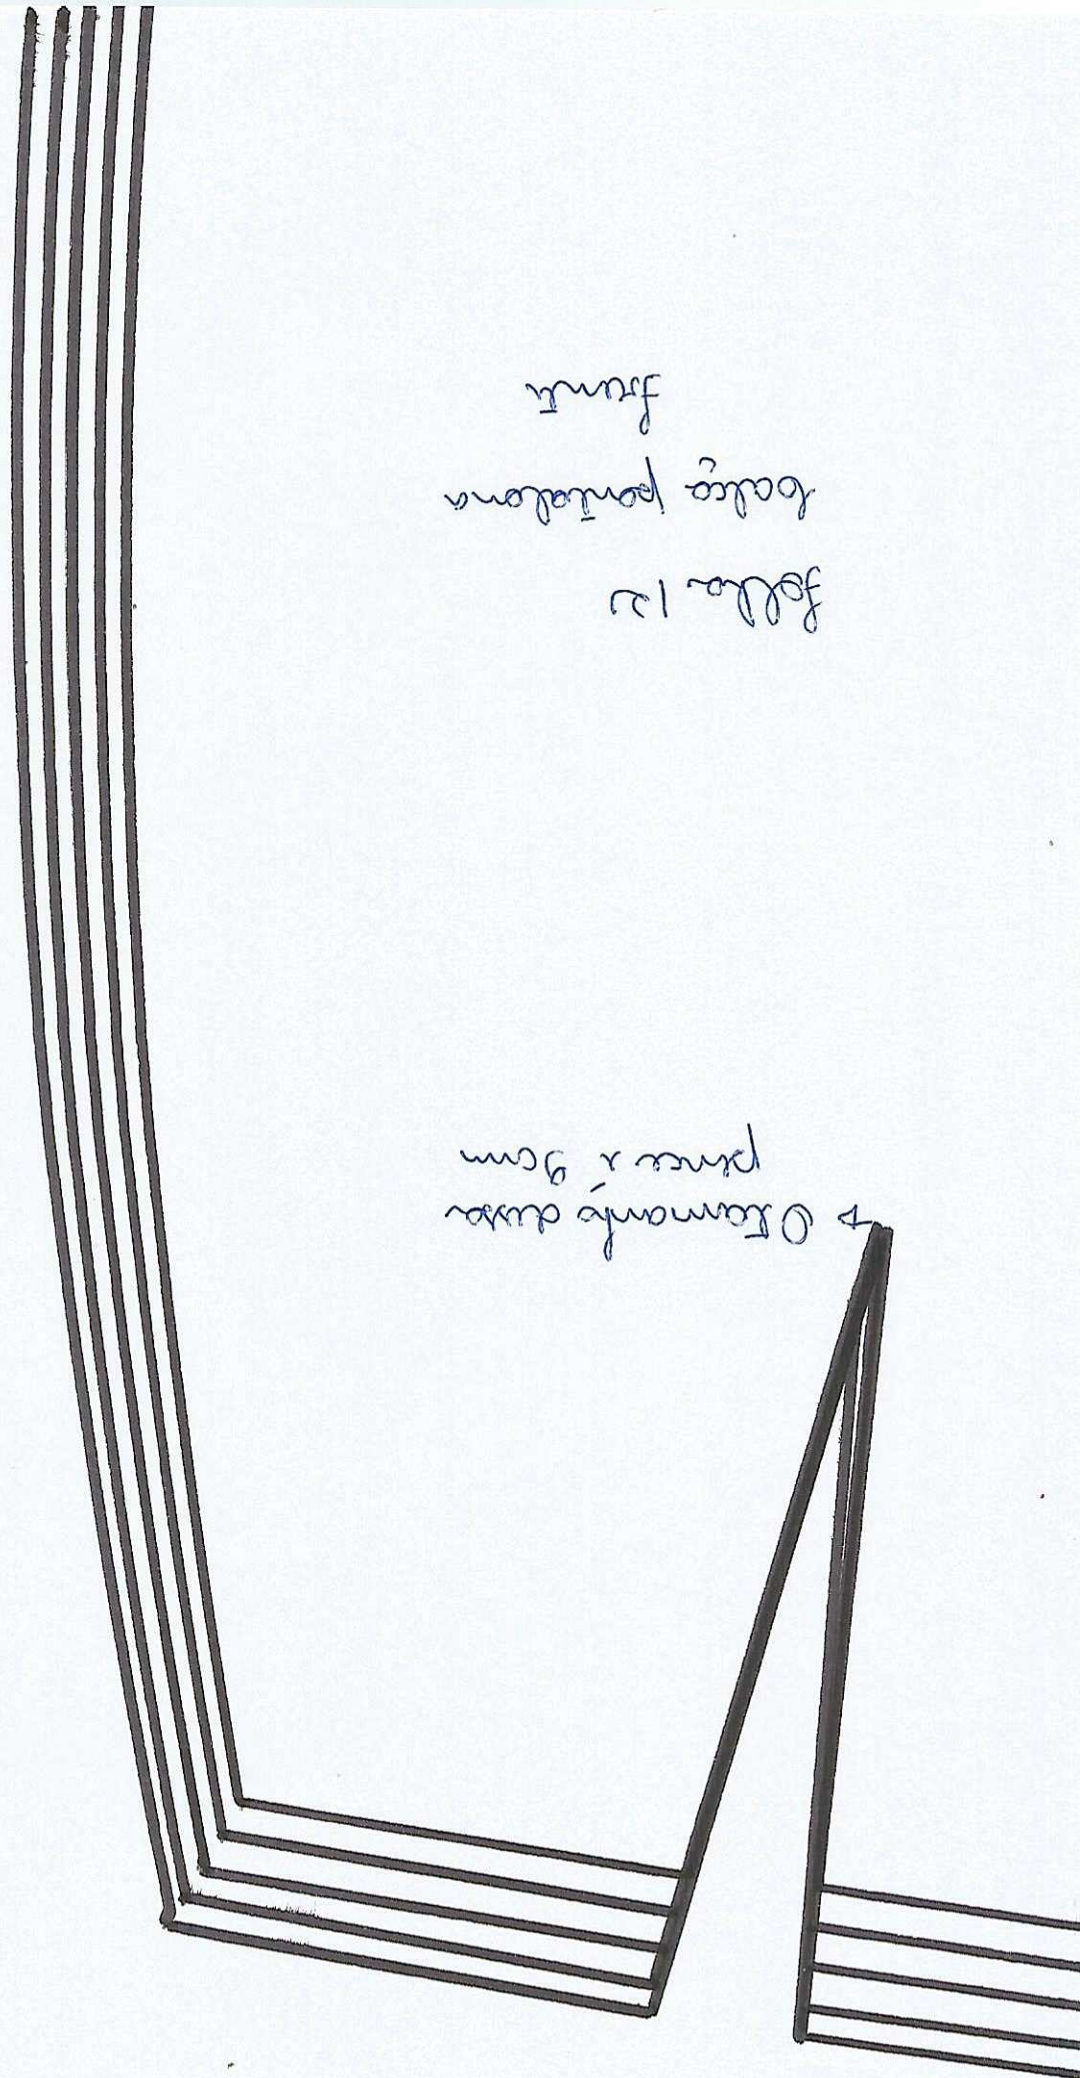 O tamanho dessa
pence é 9cm
folha 12
calça pantalona
frente